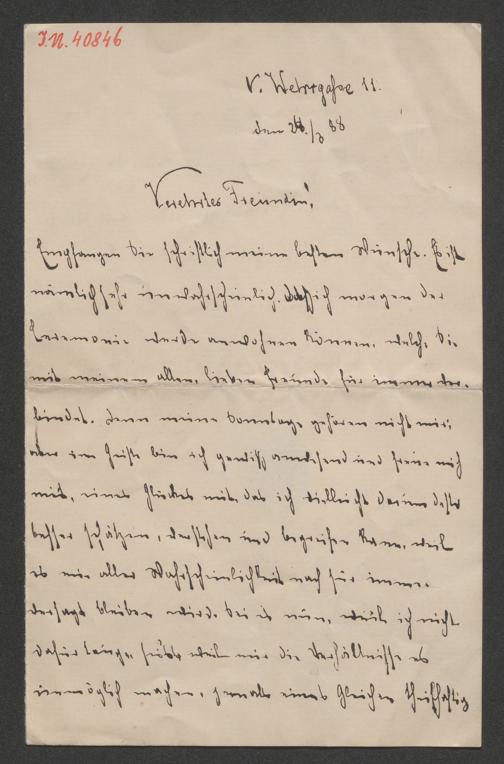 I.N. 40846
V. Wehrgasse 11.
den 28./3 88
Verehrtes Freundin!
Empfangen Sie schriftlich meine besten Wünsche. Es ist
nämlich sehr unwahrscheinlich, daß ich morgen der
Ceremonie werde anwohnen können, welche Sie
mit meinem alten, lieben Freunde für immer ver-
bindet. Denn meine Sonntage gehören nicht mir;
aber im Geiste bin ich gewiß anwesend und freue mich
mit, eines Glückes mit, das ich vielleicht darum desto
besser schätzen, verstehen und begreifen kann, weil
es mir aller Wahrscheinlichkeit nach für immer
versagt bleiben wird. Sei es nun, weil ich nicht
dafür tauge, sei's weil mir die Verhältnisse es
unmöglich machen, jemals eines Gleichen theilhaftig